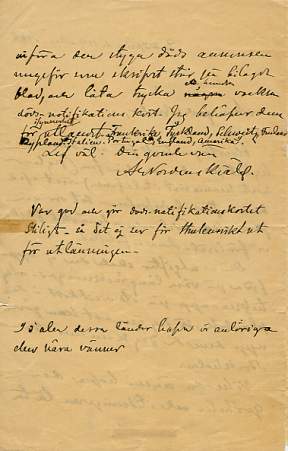 införa den stygga döds annonsen
ungefär som skrifvet står på bilagda
blad, och låta trycka några vackra
döds-notifikations kort. Jag behöfver dem
för utlandet. Frankrike, Tyskland, Schweitz,
Ryssland, Italien, Portugal, England, Amerika.
Lef väl. Din gamle vän
A E Nordenskiöld.
Var god och gör döds-notifikationskortet
stiligt - så det ej ser för
för utlänningen -
I alla dessa länder hafva vi anhöriga
eller nära vänner